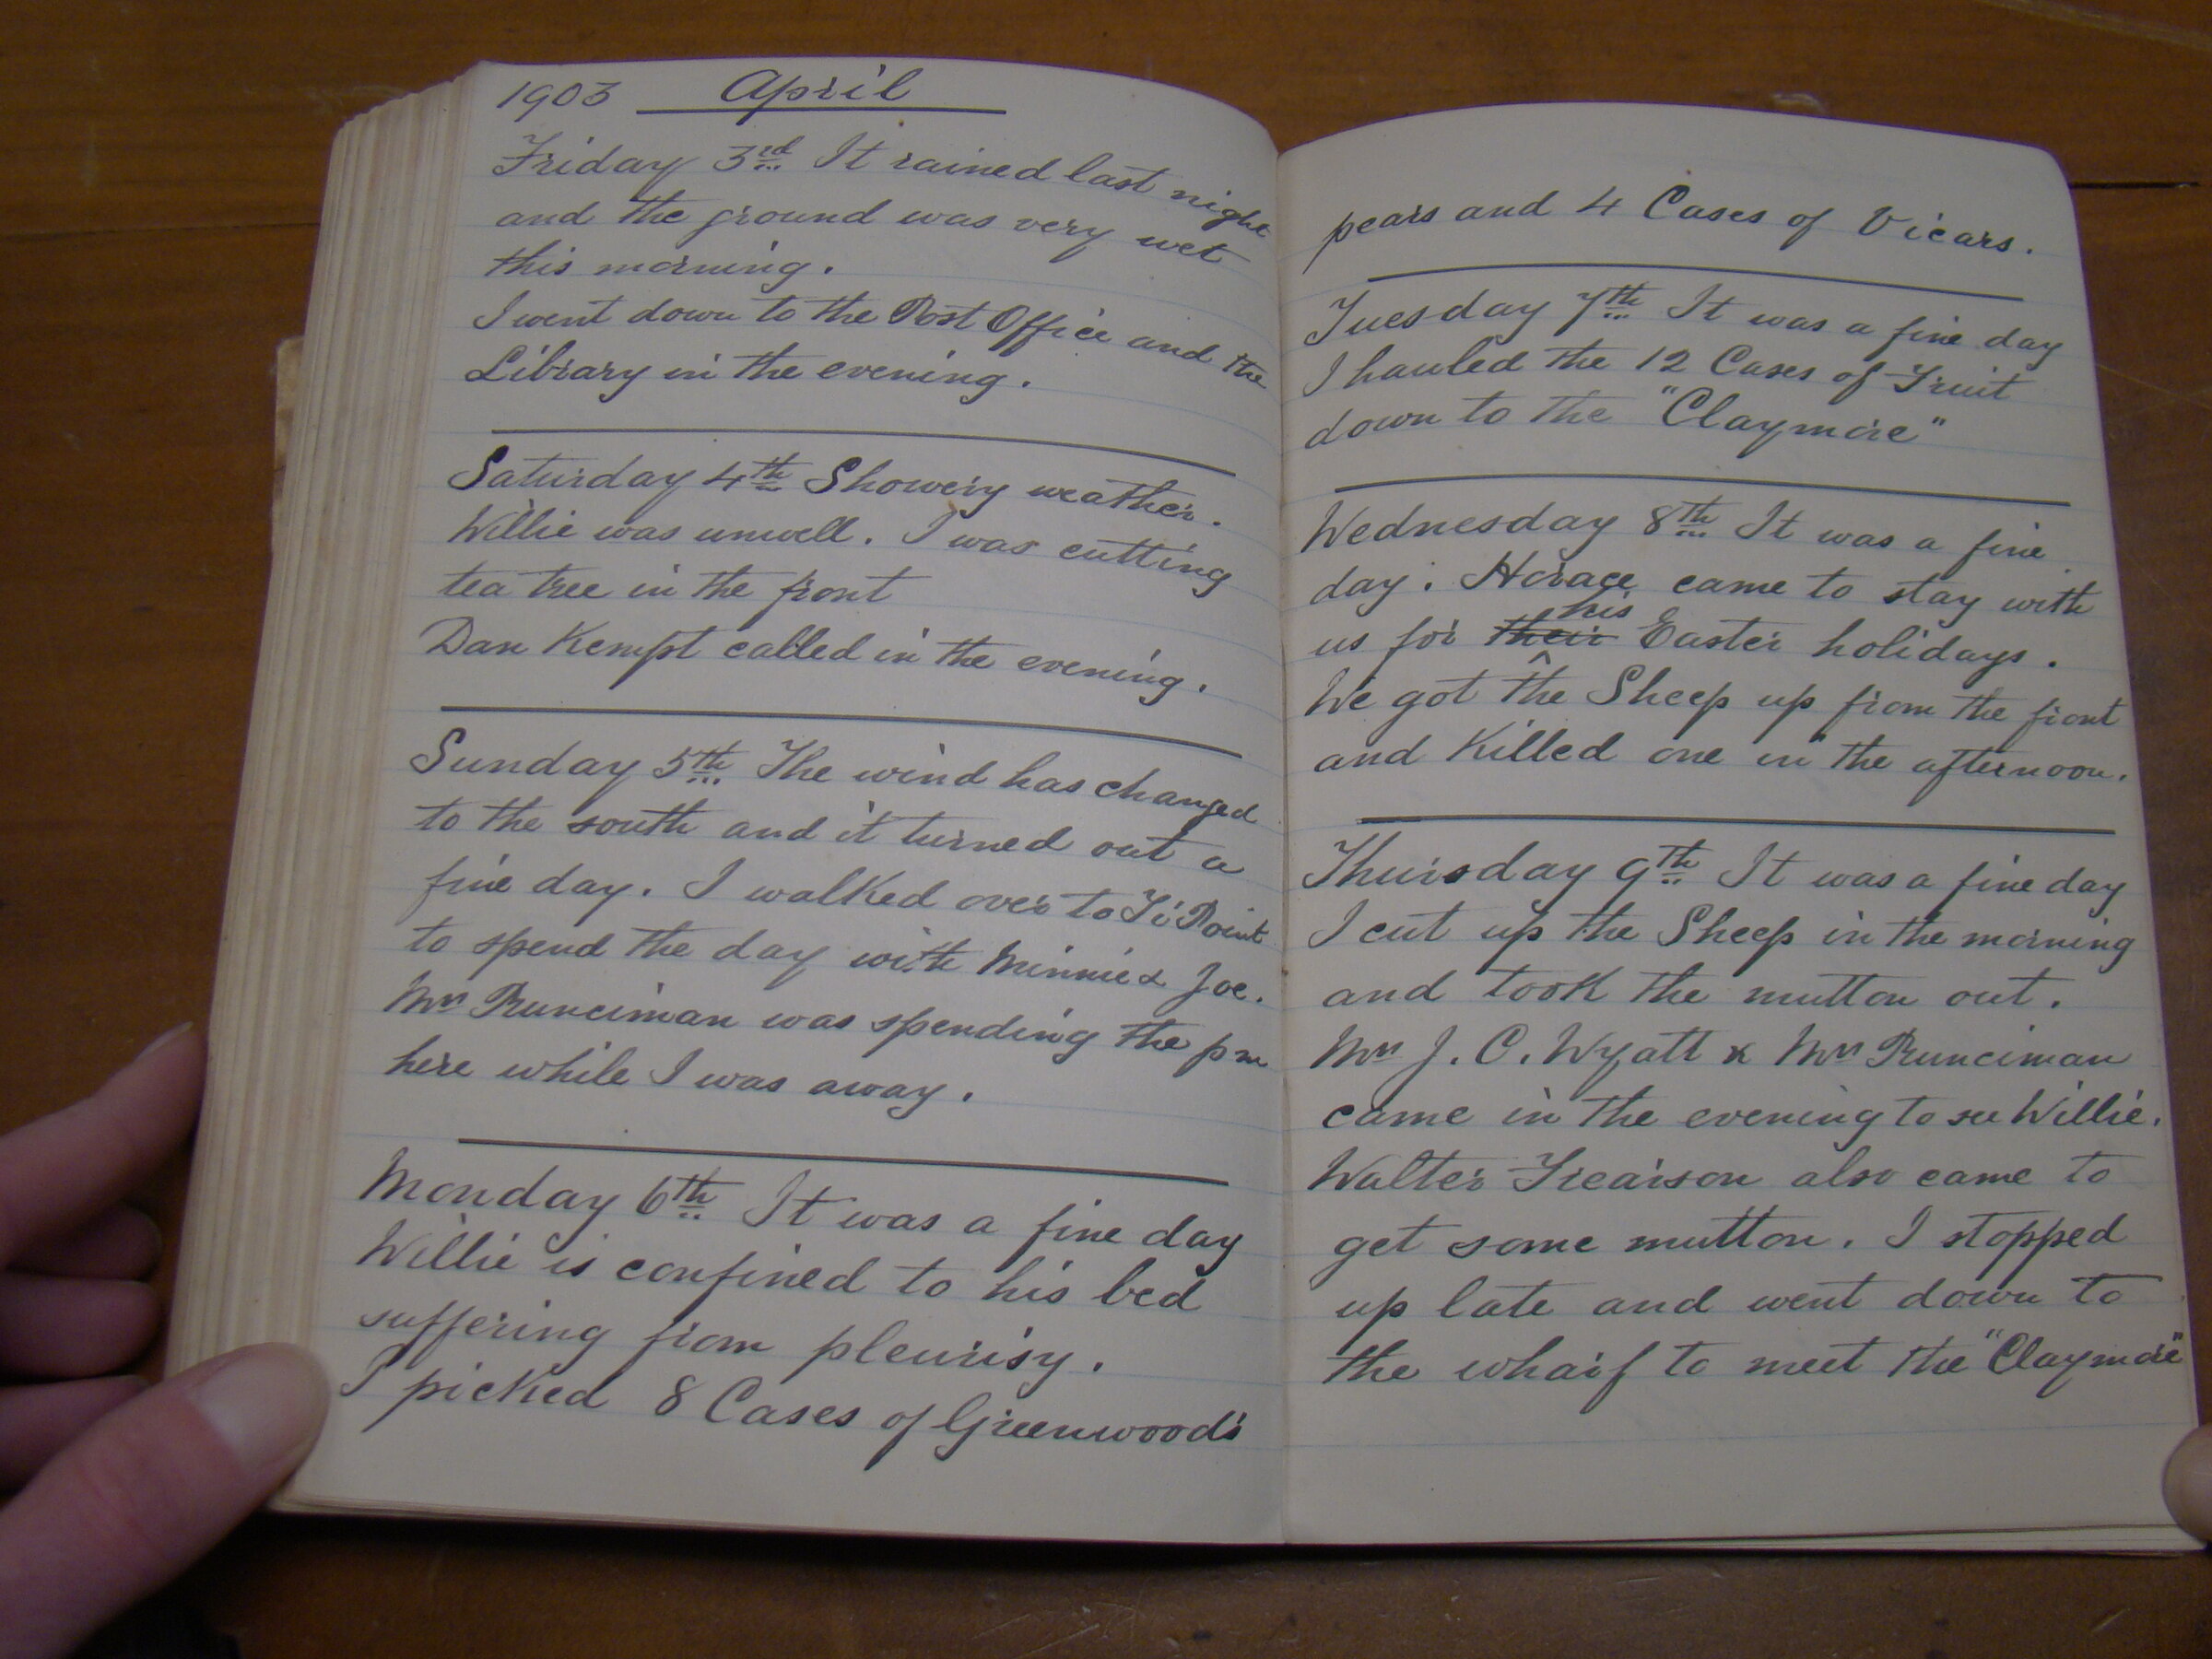 1903 April
Friday 3rd It rained last night
and the ground was very wet
this morning.
I went down to the Post Office and the
Library in the evening.
Saturday 4th Showery weather.
Willie was unwell. I was cutting
tea tree in the front
Dan Kempt called in the evening.
Sunday 5th The wind has changed
to the south and it turned out a
fine day. I walked over to Ti Point
to spend the day with Minnie & Joe.
Mrs Runciman was spending the pm
here while I was away.
Monday 6th It was a fine day
Willie is confined to his bed
suffering from pleurisy.
I picked 8 Cases of Greenwood's
pears and 4 Cases of Vicars.
Tuesday 7th It was a fine day
I hauled the 12 Cases of Fruit
down to the "Claymore"
Wednesday 8th It was a fine
day. Horace came to stay with
us for their his Easter holidays.
We got the Sheep up from the front
and Killed one in the afternoon.
Thursday 9th It was a fine day
I cut up the Sheep in the morning
and took the mutton out.
Mrs J. C. Wyatt & Mrs Runciman
came in the evening to see Willie.
Walter Frearson also came to
get some mutton. I stopped
up late and went down to
the wharf to meet the "Claymore"